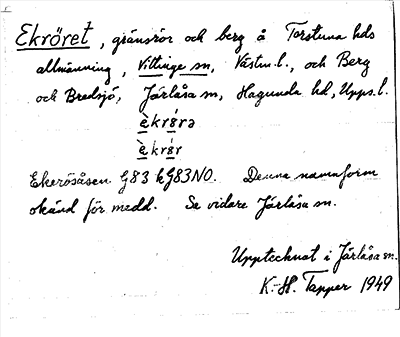 Ekröret†, gränsrör och berg å Torstuna hds
allmänning, Vittinge sn, Västm. l., och Berg
och Bredsjö, Järlåsa sn, Hagunda hd, Upps. l.
èkrö́rə
èkrö̀r
Ekerösåsen G83 kG83NO. Denna namnform
okänd för medd. Se vidare Järlåsa sn.
Upptecknat i Järlåsa sn.
K.-H. Tapper 1949